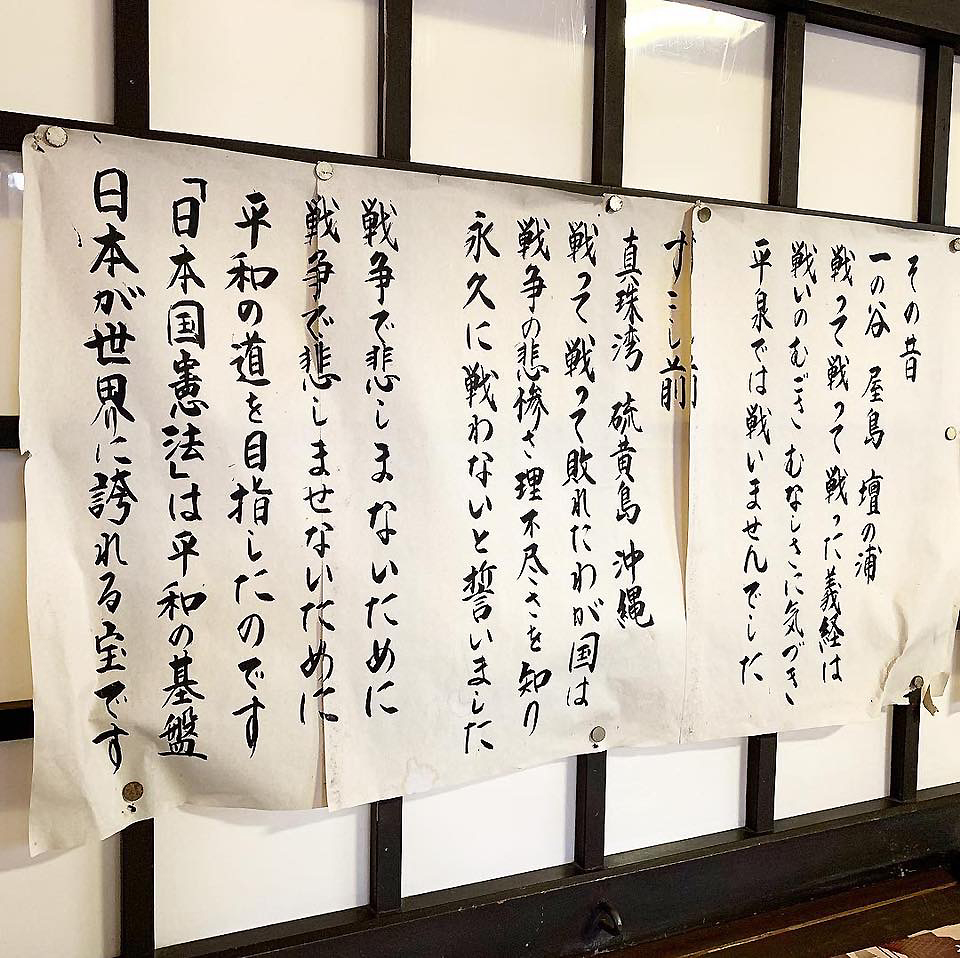 その昔
一の谷 屋島 壇の浦
戦って戦って戦った義経は
戦いのむごさむなしさに気づき
平泉では戦いませんでした
すこし前
真珠湾 硫黄島 沖縄
戦って戦って敗れたわが国は
戦争の悲惨さ理不尽さを知り
永久に戦わないと誓いました
戦争で悲しまないために
戦争で悲しませないために
平和の道を目指したのです
「日本国憲法」は平和の基盤
日本が世界に誇れる宝です